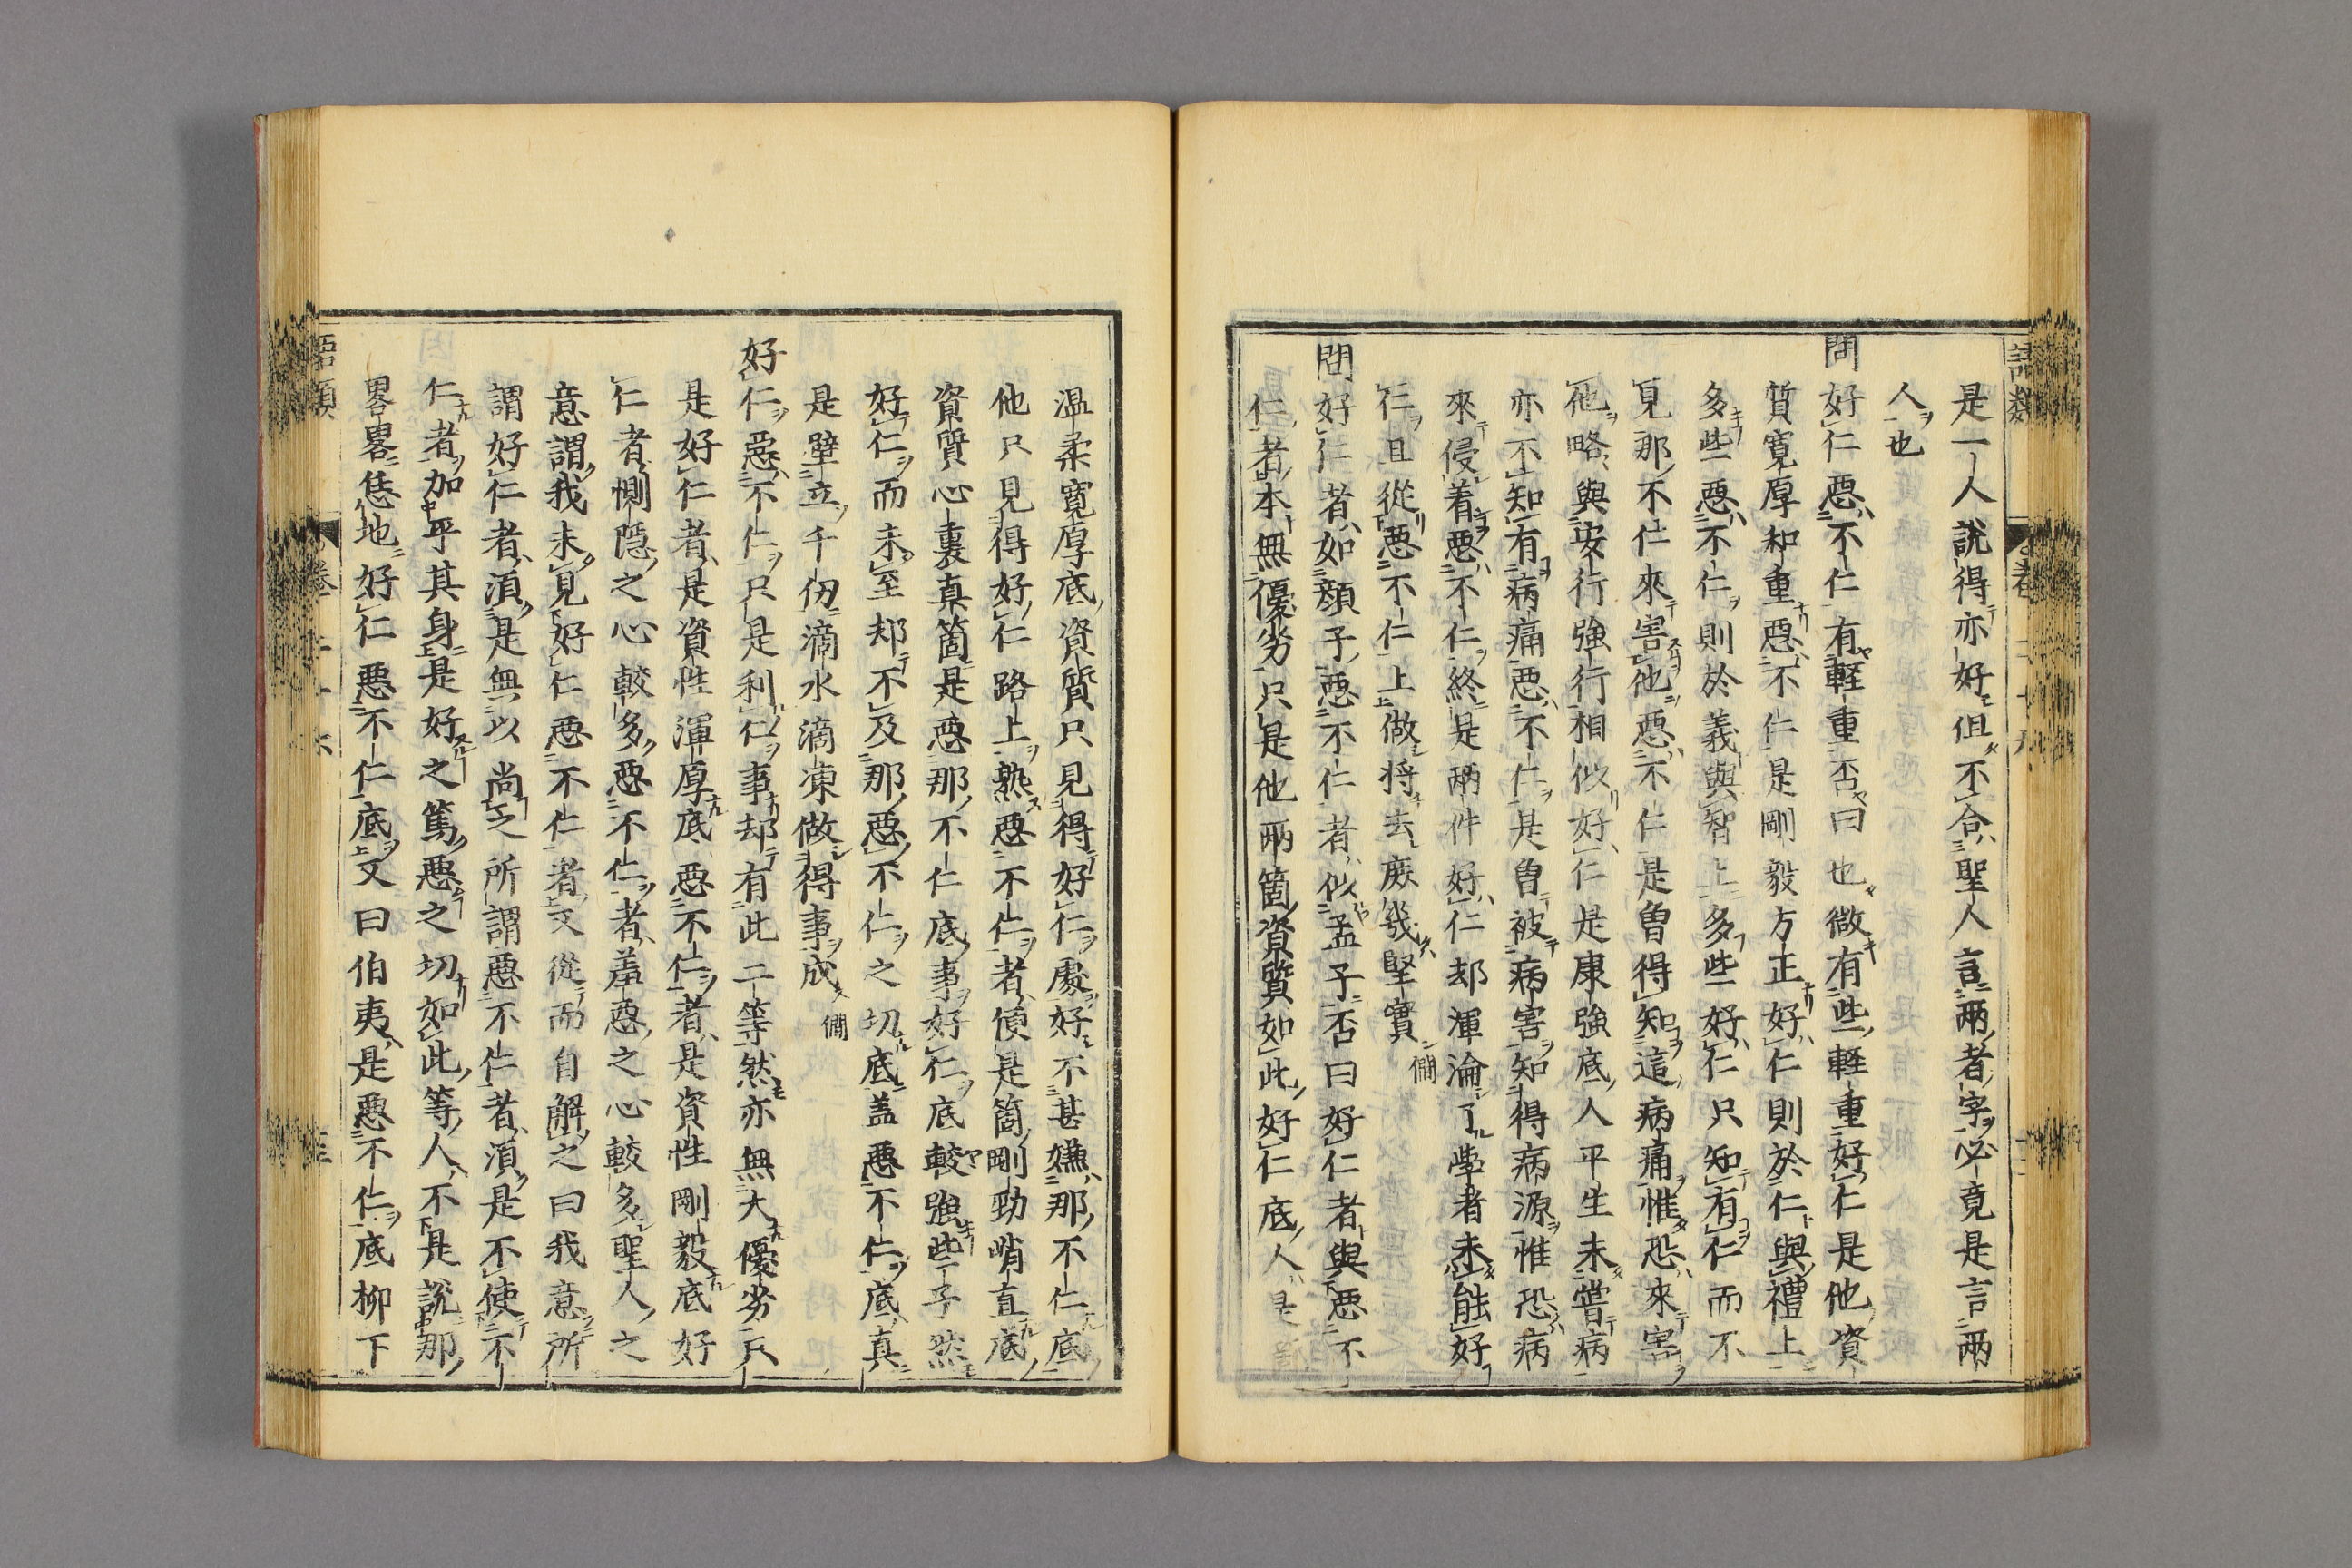 語類
是一人說得亦好但不合聖人言兩者字必竟是言兩
人也
問好仁惡不仁有軽重否曰也微有些軽重好仁是他資
質寛厚和重惡不仁是剛毅方正好仁則於仁與禮上
多些惡不仁則於義與智上多些好仁只知有仁而不
見那不仁來害他惡不仁是曾得知這病痛惟恐來害
他略與安行強行相似好仁是康強底人平生未嘗病
亦不知有病痛惡不仁是曾被病害知得病源惟恐病
來侵着惡不仁終是兩件好仁却渾淪了學者未能好
仁且從惡不仁上做将去庶幾堅實 僩
問好仁者如顔子惡不仁者似孟子否曰好仁者與惡不
仁者本無優劣只是他兩箇資質如此好仁底人是
温柔寛厚底資質只見得好仁處好不甚嫌那不仁底
他只見得好仁路上熟惡不仁者便是箇剛勁峭直底
資質心裏真箇是惡那不仁底事好仁底較強些子然
好仁而未至却不及那惡不仁之切底盖惡不仁底真
是壁立千仞滴水滴凍做得事成 僩
好仁惡不仁只是利仁事却有此二等然亦無大優劣只
是好仁者是資性渾厚底惡不仁者是資性剛毅底好
仁者惻隠之心較多惡不仁者羞惡之心較多聖人之
意謂我未見好仁惡不仁者又從而自解之曰我意所
謂好仁者湏是無以尚之所謂惡不仁者湏是不使不
仁者加乎其身是好之篤惡之切如此等人不是說那
畧畧恁地好仁惡不仁底又曰伯夷是惡不仁底柳下
語類
卷二十六